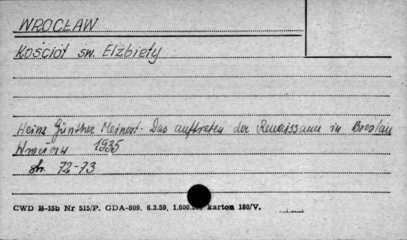 WROCŁAW
Kościół sw. Elżbiety
Heinz Günther Meinert. Das auftreten der Renaissance in Breslau
1935
str. 72-73
CWD B-15b Nr 515/P. GDA-809. 6.3.59. 1.600.000 karton 180/V.